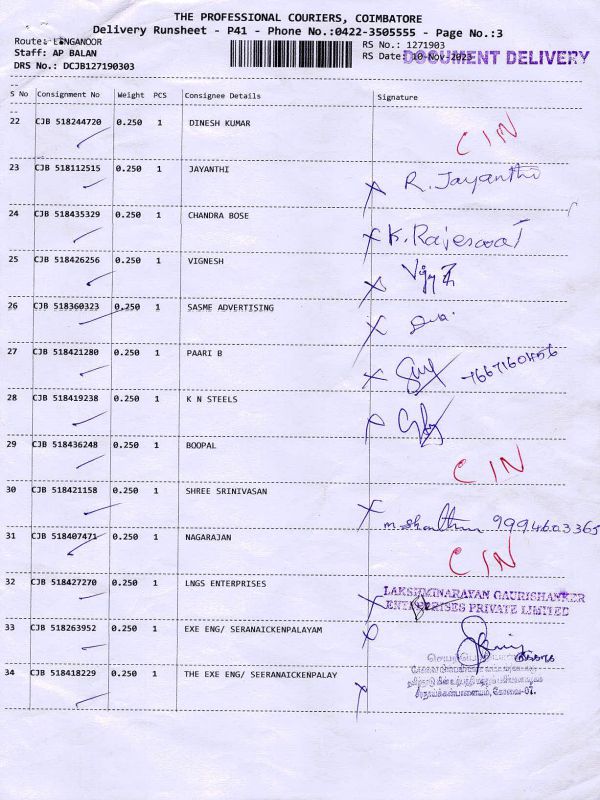 THE PROFESSIONAL COURIERS, COIMBATORE
Delivery Runsheet - P41 - Phone No.:0422-3505555 - Page No.:3
Route: LINGANOOR RS No.: 1271903
Staff: AP BALAN RS Date: 10-Nov-2023 DOCUMENT DELIVERY
DRS No.: DCJB127190303
S No Consignment No Weight PCS Consignee Details Signature
22 CJB 518244720 0.250 1 DINESH KUMAR CIN
23 CJB 518112515 0.250 1 JAYANTHI R. Jayanthi
24 CJB 518435329 0.250 1 CHANDRA BOSE K. Rajeswari
25 CJB 518426256 0.250 1 VIGNESH
26 CJB 518360323 0.250 1 SASME ADVERTISING
27 CJB 518421280 0.250 1 PAARI B 7667160456
28 CJB 518419238 0.250 1 K N STEELS
29 CJB 518436248 0.250 1 BOOPAL CIN
30 CJB 518421158 0.250 1 SHREE SRINIVASAN 9994603365
31 CJB 518407471 0.250 1 NAGARAJAN CIN
32 CJB 518427270 0.250 1 LNGS ENTERPRISES LAKSHMINARAYAN GAURISHANKER
ENTERPRISES PRIVATE LIMITED
33 CJB 518263952 0.250 1 EXE ENG/ SERANAICKENPALAYAM
34 CJB 518418229 0.250 1 THE EXE ENG/ SEERANAICKENPALAY
கோவை-07.